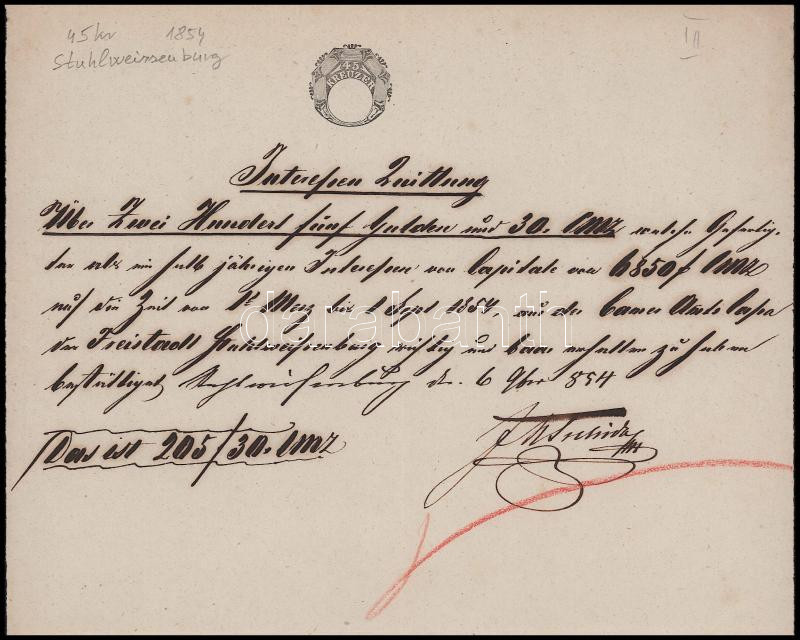 45 kr 1854
Stuhlweissenburg
I A
45
KREUZER
Interessen Quittung
Über Zwei Hundert fünf Gulden und 30. CMz welche Gefertig-
ter als ein halb jährigen Interessen von Capitale von 6850 f CMz
auf die Zeit von 1t Merz bis 1 Sept 1854 aus der Amts Cassa
der Freistadt Stuhlweissenburg richtig und baar erhalten zu haben
bestättiget Stuhlweissenburg den 6 9ber 854
Das ist 205/30. CMz
darabanth